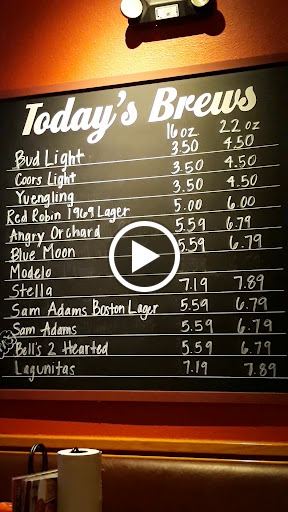 Today's Brews
16 oz 22 oz
Bud Light 3.50 4.50
Coors Light 3.50 4.50
Yuengling 3.50 4.50
Red Robin 1969 Lager 5.00 6.00
Angry Orchard 5.59 6.79
Blue Moon 5.59 6.79
Modelo
Stella 7.19 7.89
Sam Adams Boston Lager 5.59 6.79
Sam Adams 5.59 6.79
Bell's 2 Hearted 5.59 6.79
Lagunitas 7.19 7.89